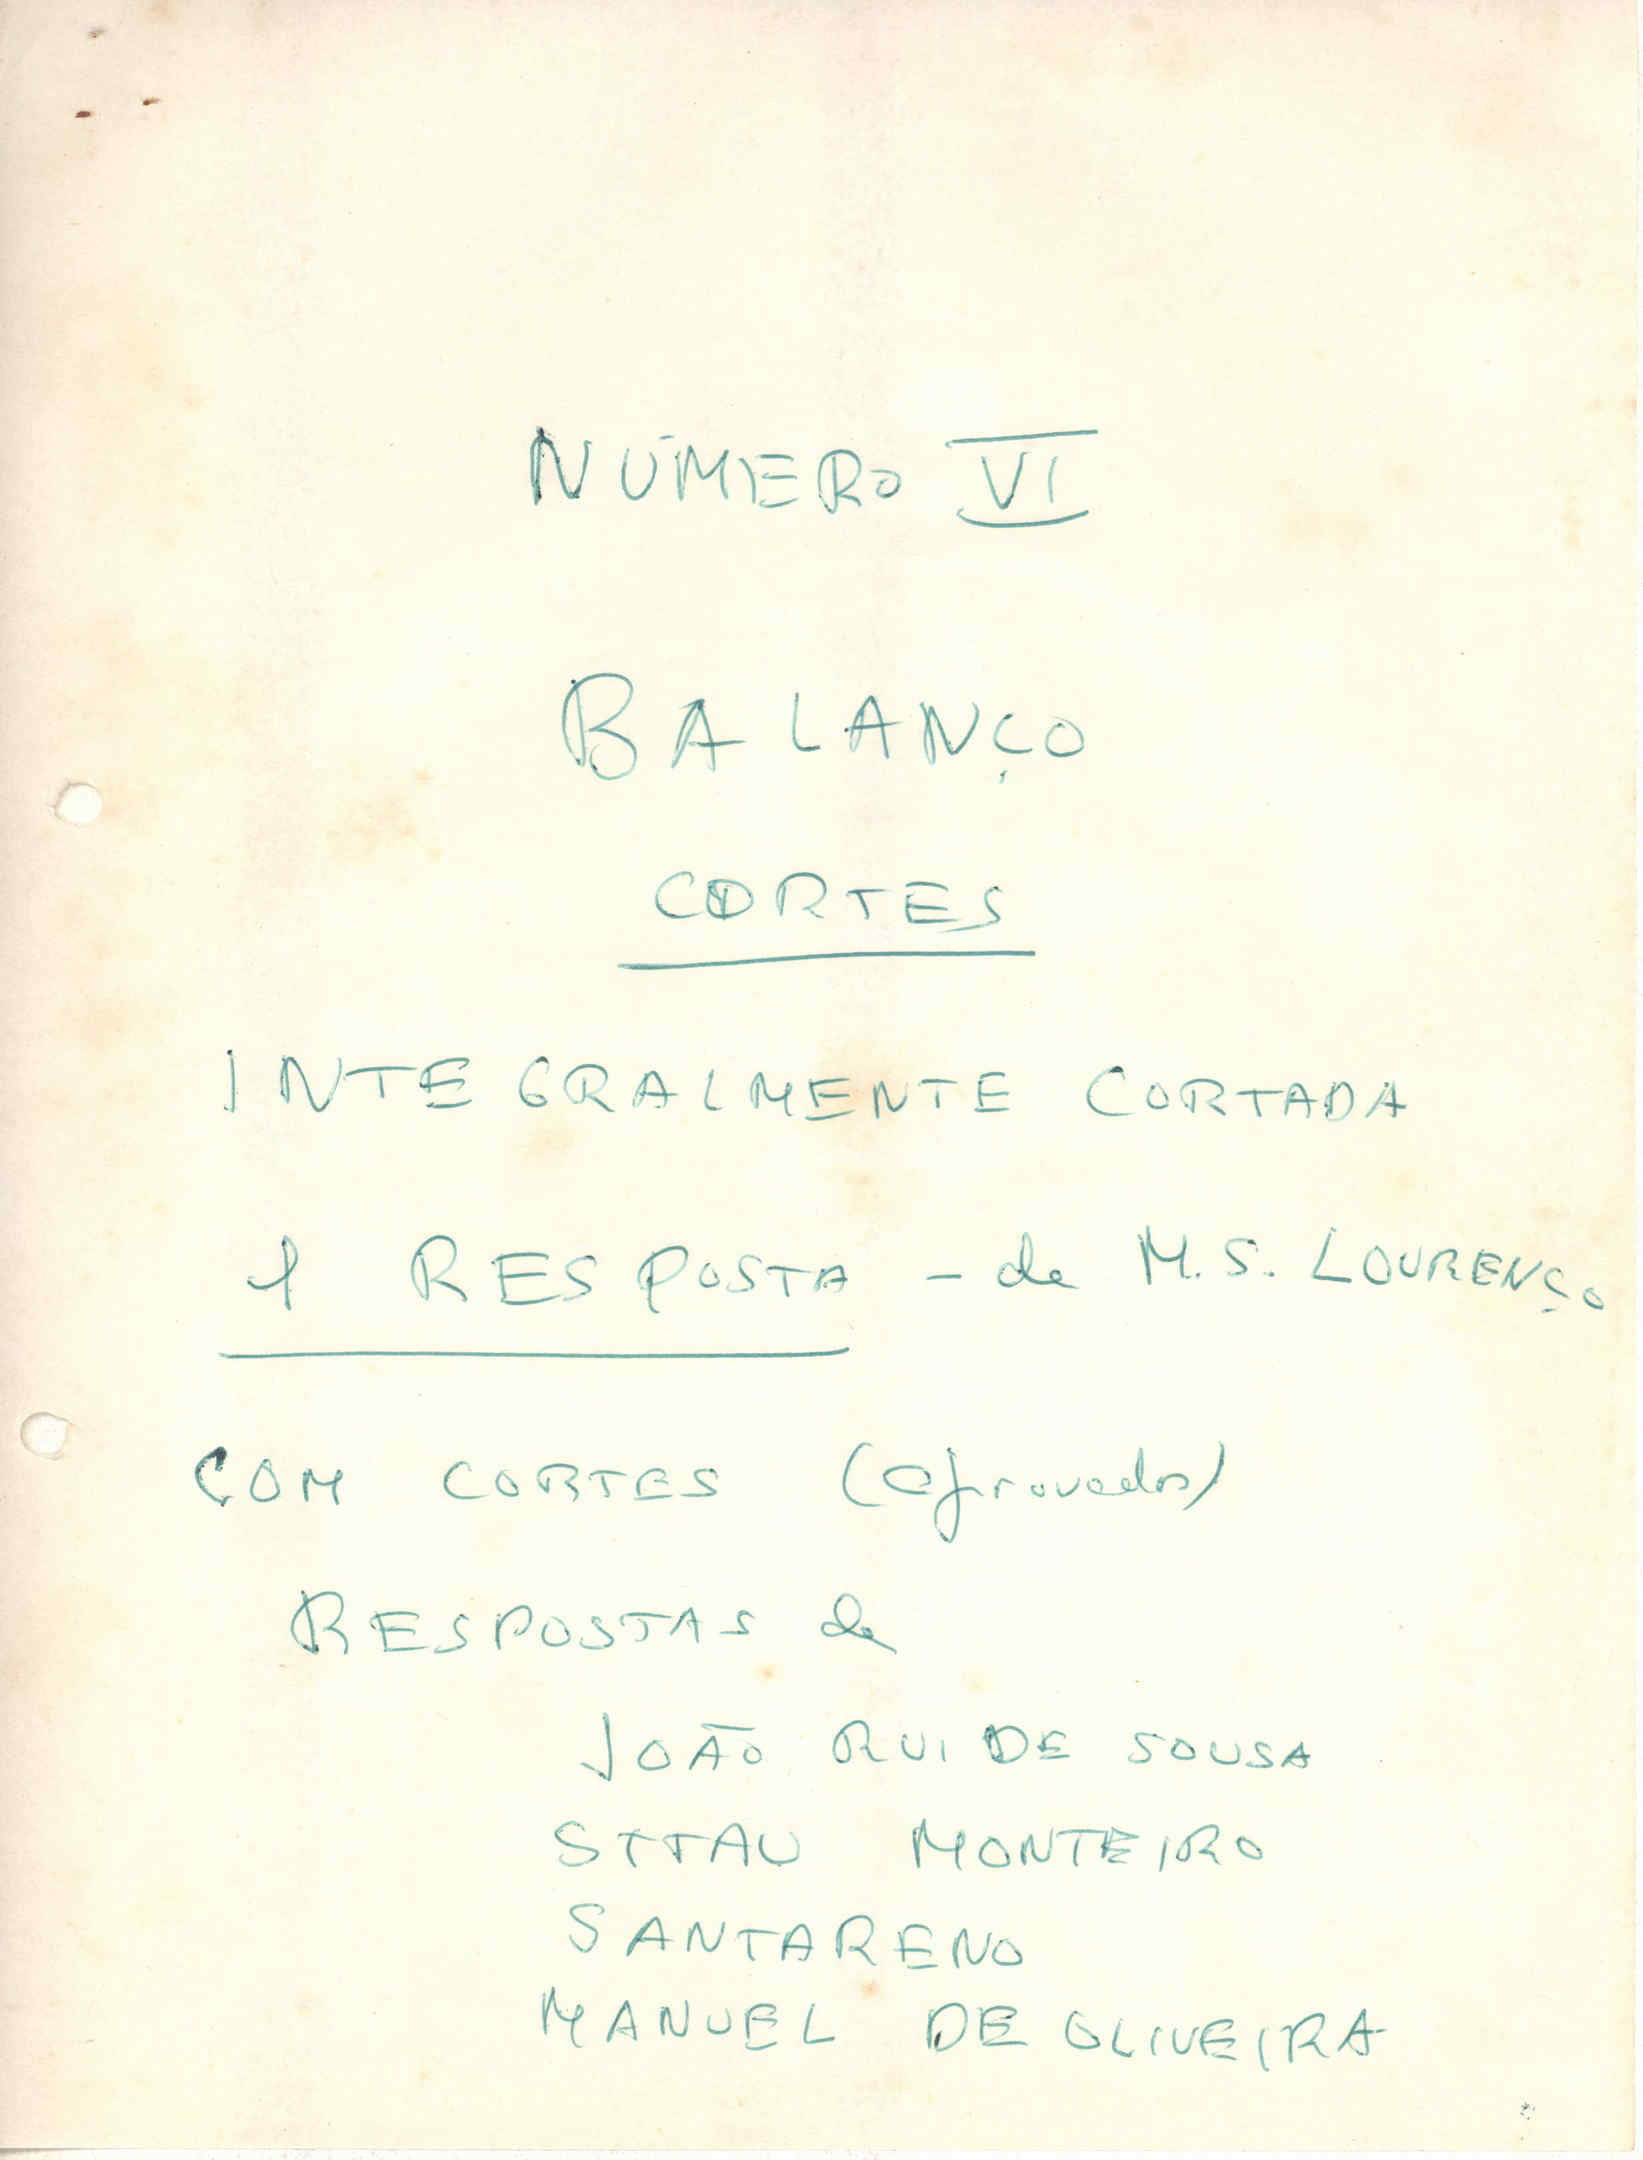 NÚMERO VI
BALANÇO
CORTES
INTEGRALMENTE CORTADA
1 RESPOSTA - de M. S. LOURENÇO
COM CORTES (aprovados)
RESPOSTAS de
JOÃO RUI DE SOUSA
STTAU MONTEIRO
SANTARENO
MANUEL DE OLIVEIRA